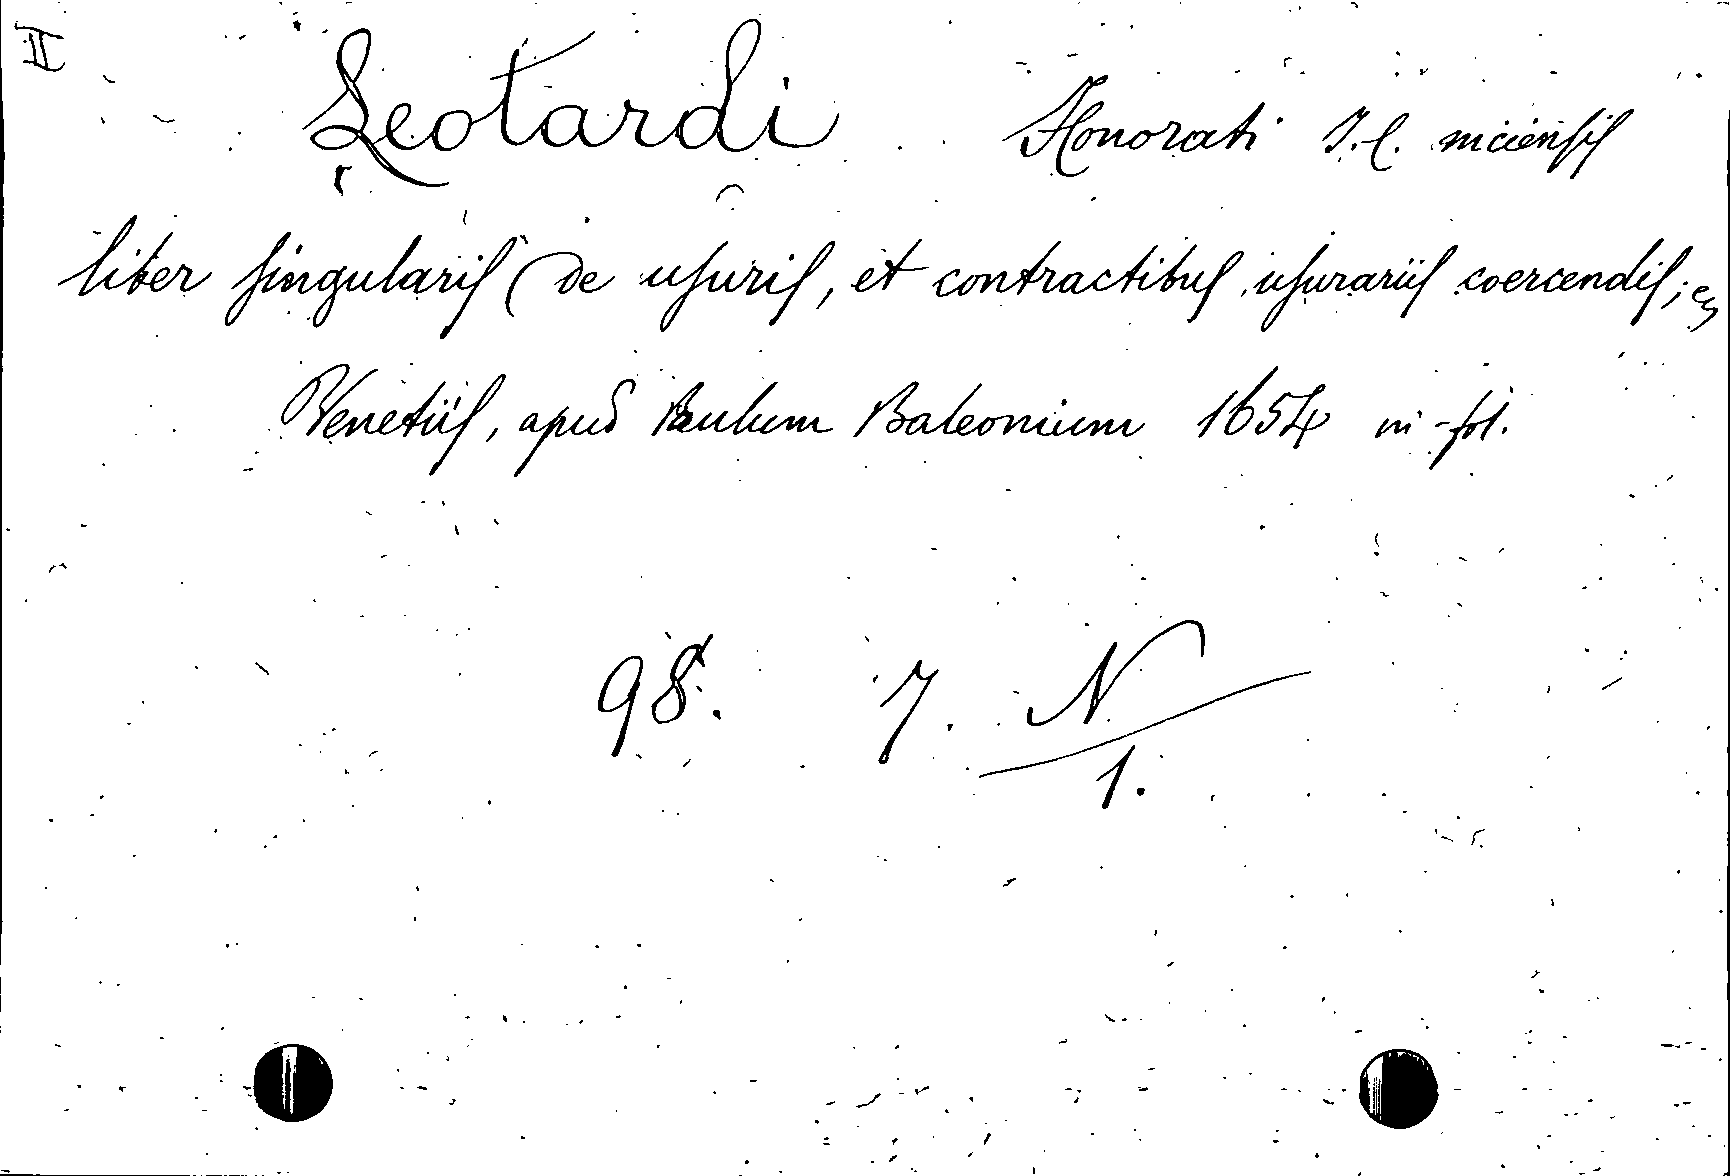 II
Leotardi Honorati J.C. niciensis
liber singularis (de usuris, et contractibus usurariis coercendis; 
Venetiis, apud Paulum Baleonium 1654 in-fol.
98. 7. N
1.